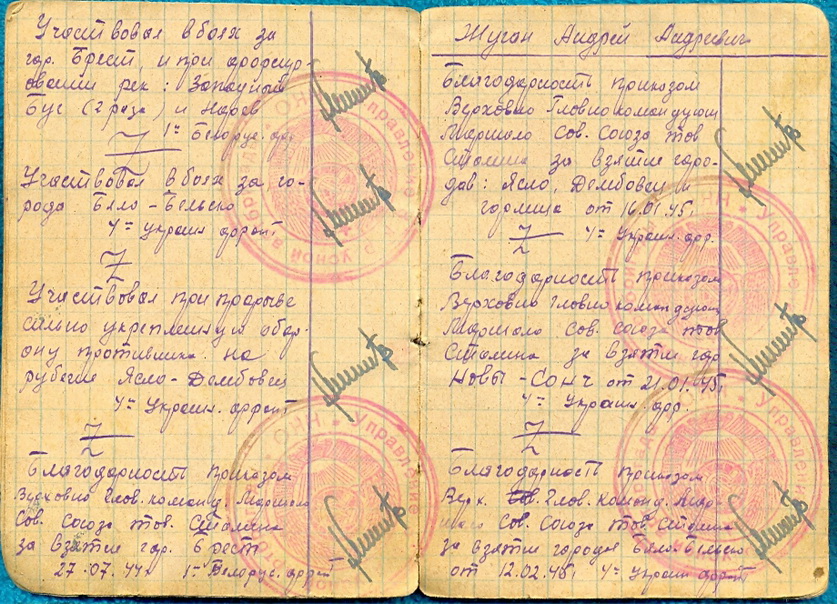 Участвовал в боях за
гор. Брест, и при фор­сир­
овании рек: Западный
Буг (2 раза) и Нарев
1й Белорус. фр.
Участвовал в боях за го-
рода Бяло-Бельско
4й Украин. фронт
Участвовал при прорыве
сильно укрепленную обор-
ону противника на
рубеже Ясло-Дембовец
4й Украин. фронт
Благодарность приказом
Верховно Глав. команд. Маршала
Сов. Союза тов. Сталина
за взятие гор. Брест
27.07.44г 1й Белорус. фронт
Жуган Андрей Андреевич
Благодарность приказом
Верховно Главнокомандующ
Маршала Сов. Союза тов
Сталина за взятие горо-
дов: Ясло, Дембовец и
Горлица от 16.01.45г
4й Украин. фр.
Благодарность приказом
Верховно Главнокомандующ
Маршала Сов. Союза тов
Сталина за взятие гор
Новы-Сонч от 21.01.45г
4й Украин. фр.
Благодарность приказом
Верх. Глав. Команд. Мар-
шала Сов. Союза тов. Сталина
за взятие города Бяло-Бельско
от 12.02.45г 4й Украин фронт
Управление
Управление
Управление
Управление